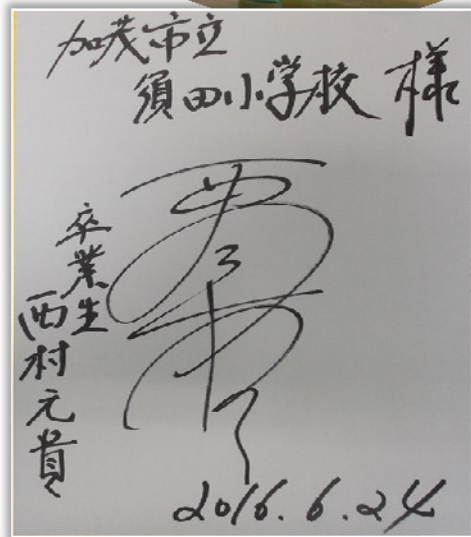 加茂市立
須田小学校 様
卒業生
西村元貴
2016.6.24